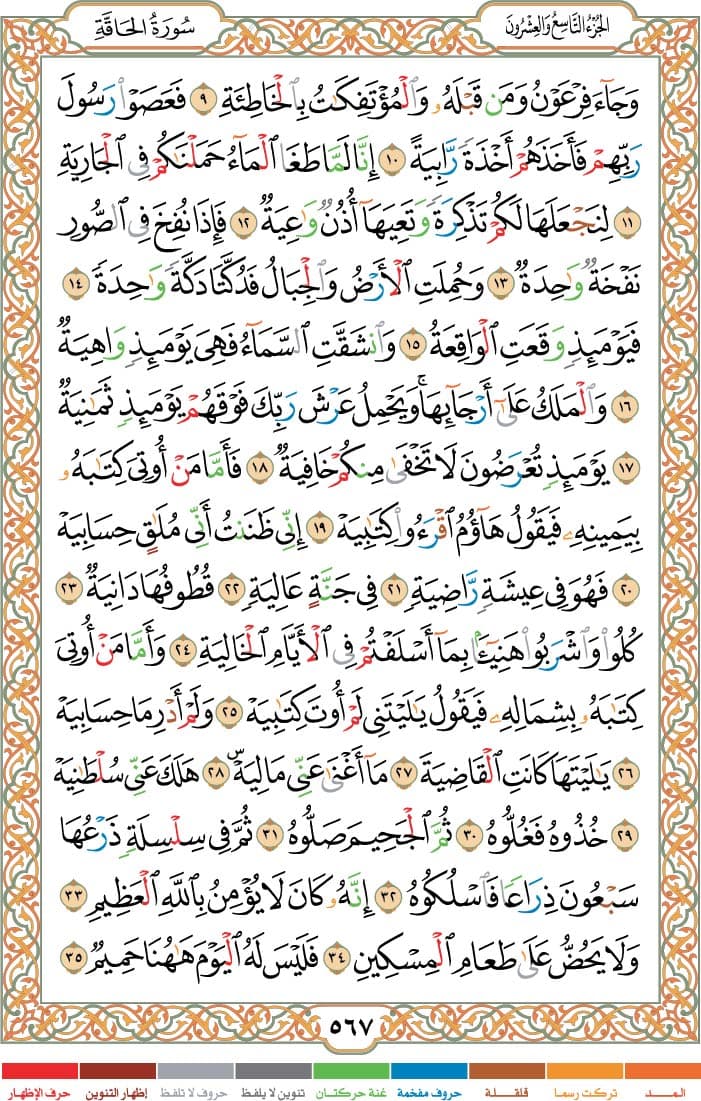 الجُزْءُ التَّاسِعُ وَالعِشْرُونَ
سُورَةُ الحَاقَّةِ
وَجَآءَ فِرْعَوْنُ وَمَن قَبْلَهُۥ وَٱلْمُؤْتَفِكَٰتُ بِٱلْخَاطِئَةِ ٩ فَعَصَوْا۟ رَسُولَ
رَبِّهِمْ فَأَخَذَهُمْ أَخْذَةً رَّابِيَةً ١٠ إِنَّا لَمَّا طَغَا ٱلْمَآءُ حَمَلْنَٰكُمْ فِى ٱلْجَارِيَةِ
١١ لِنَجْعَلَهَا لَكُمْ تَذْكِرَةً وَتَعِيَهَآ أُذُنٌ وَٰعِيَةٌ ١٢ فَإِذَا نُفِخَ فِى ٱلصُّورِ
نَفْخَةٌ وَٰحِدَةٌ ١٣ وَحُمِلَتِ ٱلْأَرْضُ وَٱلْجِبَالُ فَدُكَّتَا دَكَّةً وَٰحِدَةً ١٤
فَيَوْمَئِذٍ وَقَعَتِ ٱلْوَاقِعَةُ ١٥ وَٱنشَقَّتِ ٱلسَّمَآءُ فَهِىَ يَوْمَئِذٍ وَاهِيَةٌ
١٦ وَٱلْمَلَكُ عَلَىٰٓ أَرْجَآئِهَا ۚ وَيَحْمِلُ عَرْشَ رَبِّكَ فَوْقَهُمْ يَوْمَئِذٍ ثَمَٰنِيَةٌ
١٧ يَوْمَئِذٍ تُعْرَضُونَ لَا تَخْفَىٰ مِنكُمْ خَافِيَةٌ ١٨ فَأَمَّا مَنْ أُوتِىَ كِتَٰبَهُۥ
بِيَمِينِهِۦ فَيَقُولُ هَآؤُمُ ٱقْرَءُوا۟ كِتَٰبِيَهْ ١٩ إِنِّى ظَنَنتُ أَنِّى مُلَٰقٍ حِسَابِيَهْ
٢٠ فَهُوَ فِى عِيشَةٍ رَّاضِيَةٍ ٢١ فِى جَنَّةٍ عَالِيَةٍ ٢٢ قُطُوفُهَا دَانِيَةٌ ٢٣
كُلُوا۟ وَٱشْرَبُوا۟ هَنِيٓـًٔۢا بِمَآ أَسْلَفْتُمْ فِى ٱلْأَيَّامِ ٱلْخَالِيَةِ ٢٤ وَأَمَّا مَنْ أُوتِىَ
كِتَٰبَهُۥ بِشِمَالِهِۦ فَيَقُولُ يَٰلَيْتَنِى لَمْ أُوتَ كِتَٰبِيَهْ ٢٥ وَلَمْ أَدْرِ مَا حِسَابِيَهْ
٢٦ يَٰلَيْتَهَا كَانَتِ ٱلْقَاضِيَةَ ٢٧ مَآ أَغْنَىٰ عَنِّى مَالِيَهْ ۜ ٢٨ هَلَكَ عَنِّى سُلْطَٰنِيَهْ
٢٩ خُذُوهُ فَغُلُّوهُ ٣٠ ثُمَّ ٱلْجَحِيمَ صَلُّوهُ ٣١ ثُمَّ فِى سِلْسِلَةٍ ذَرْعُهَا
سَبْعُونَ ذِرَاعًا فَٱسْلُكُوهُ ٣٢ إِنَّهُۥ كَانَ لَا يُؤْمِنُ بِٱللَّهِ ٱلْعَظِيمِ ٣٣
وَلَا يَحُضُّ عَلَىٰ طَعَامِ ٱلْمِسْكِينِ ٣٤ فَلَيْسَ لَهُ ٱلْيَوْمَ هَٰهُنَا حَمِيمٌ ٣٥
٥٦٧
المــد تركت رسما قلقلة حروف مفخمة غنة حركتان تنوين لا يلفظ حروف لا تلفظ إظهار التنوين حرف الإظهار